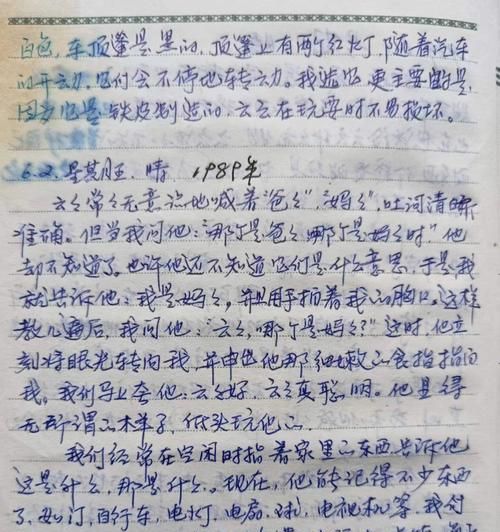 白色，车顶篷是黑的，顶篷上有两个红灯，随着汽车
的开动，它们会不停地转动。我选它更主要的是，
因为它是铁皮制造的，云云在玩耍时不易损坏。
6.2. 星期五. 晴 1989年
云云常々无意识地喊着"爸々"，"妈々"，吐词清晰
准确。但当我问他："哪个是爸々哪个是妈々时"他
却不知道了。也许他还不知道它们是什么意思，于是我
就告诉他：我是妈々，并且用手拍着我的胸口，这样
教几遍后，我问他："云々，哪个是妈々？"这时，他立
刻将眼光转向我，并伸出他那细嫩的食指指向
我。我们马上夸他：云々好，云々真聪明。他显得
无所谓的样子，低头玩他的。
我们经常在空闲时指着家里的东西告诉他
这是什么，那是什么。现在，他能记得不少东西
了，如门，自行车，电灯，电扇，球，电视机等，我们